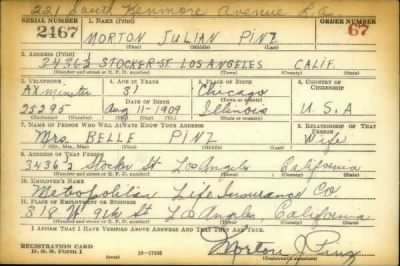 221 South Kenmore Avenue L.A.
SERIAL NUMBER 1. NAME (Print) ORDER NUMBER
2467 MORTON JULIAN PINZ 67
(First) (Middle) (Last)
2. ADDRESS (Print)
3436½ STOCKER ST LOS ANGELES CALIF.
(Number and street or R. F. D. number) (Town) (County) (State)
3. TELEPHONE 4. AGE IN YEARS 5. PLACE OF BIRTH 6. COUNTRY OF CITIZENSHIP
AXminster 31 Chicago
(Town or county)
DATE OF BIRTH
25295 Aug 11-1909 Illinois U.S.A
(Exchange) (Number) (Mo.) (Day) (Yr.) (State or country)
7. NAME OF PERSON WHO WILL ALWAYS KNOW YOUR ADDRESS 8. RELATIONSHIP OF THAT PERSON
Mrs. BELLE PINZ Wife
(Mr., Mrs., Miss) (First) (Middle) (Last)
9. ADDRESS OF THAT PERSON
3436½ Stocker St Los Angeles California
(Number and street or R. F. D. number) (Town) (County) (State)
10. EMPLOYER'S NAME
Metropolitan Life Insurance Co
11. PLACE OF EMPLOYMENT OR BUSINESS
318 W 9th St Los Angeles, California
(Number and street or R. F. D. number) (Town) (County) (State)
I AFFIRM THAT I HAVE VERIFIED ABOVE ANSWERS AND THAT THEY ARE TRUE.
REGISTRATION CARD
D. S. S. Form 1 Morton J Pinz